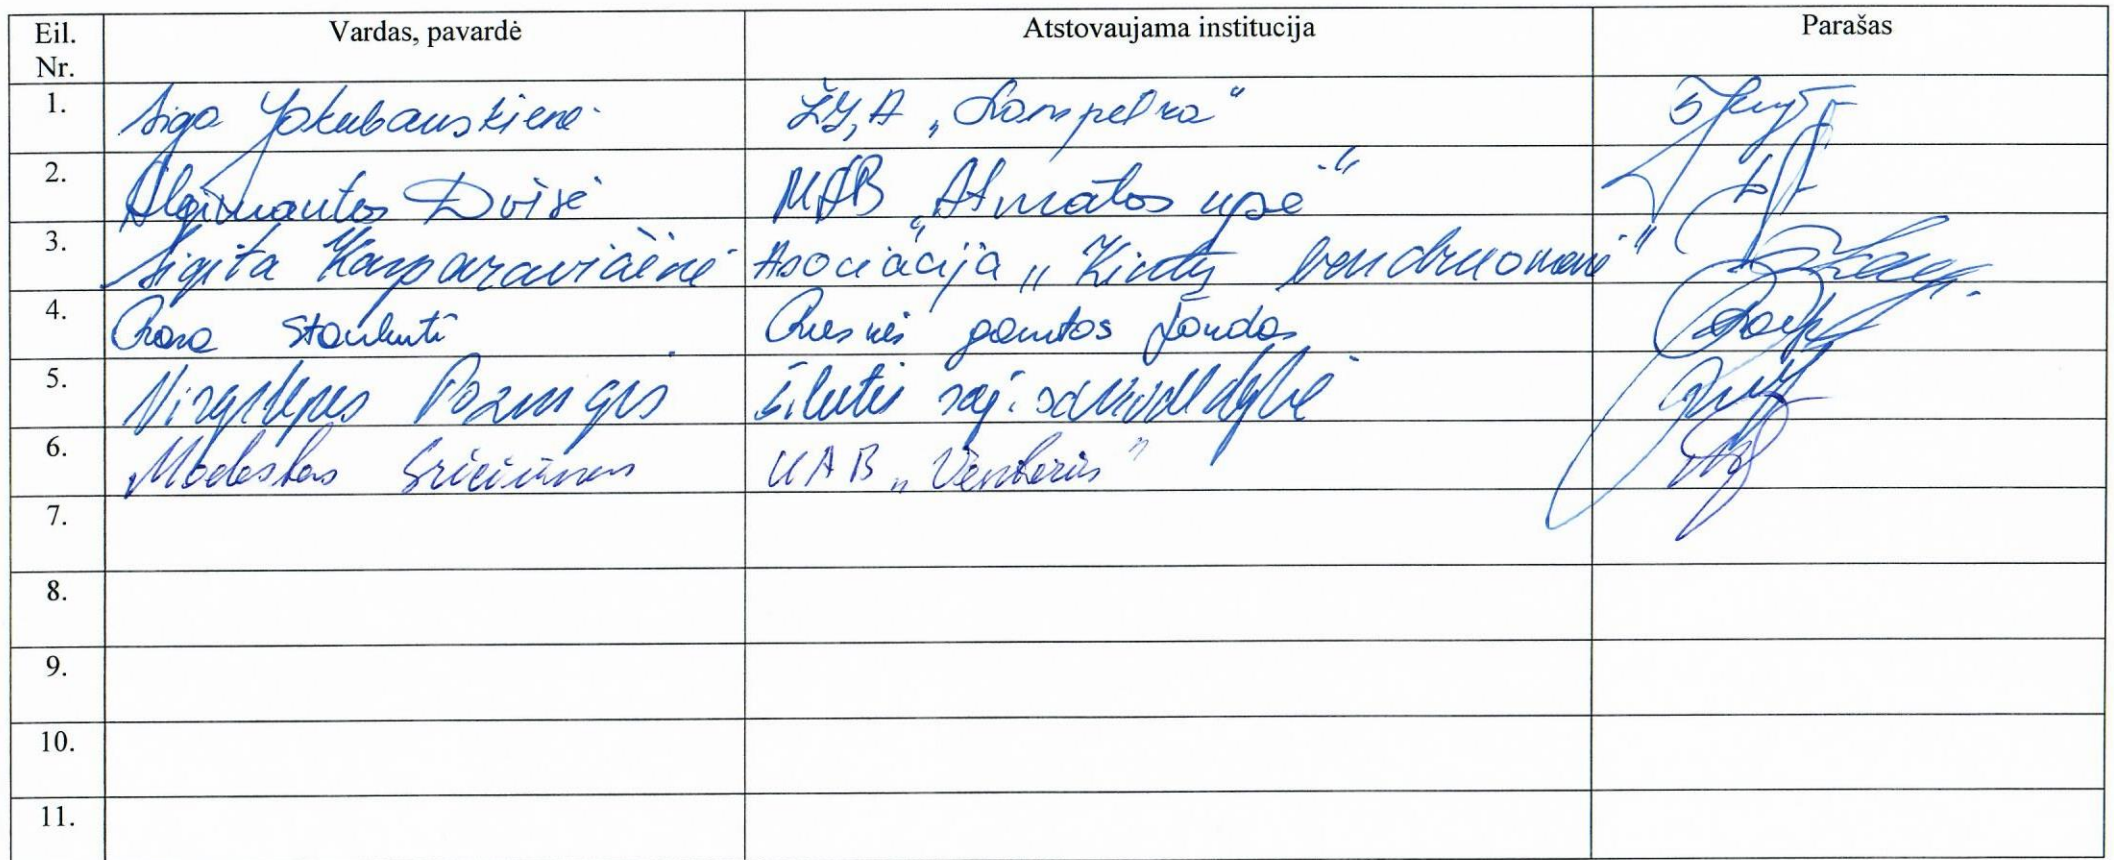 Eil. Nr. Vardas, pavardė Atstovaujama institucija Parašas
1. Jakubauskienė "Lampetra"
2. Algimantas Dvisė MAB „Atmatos upė“
3. Sigita Kasparavičienė Asociacija „Kintų bendruomenė“
4. Rasa Rusnės gamtos fondas
5. Virgilijus Pozingis Šilutės raj. savivaldybė
6. Modestas UAB „Venteris“
7.
8.
9.
10.
11.